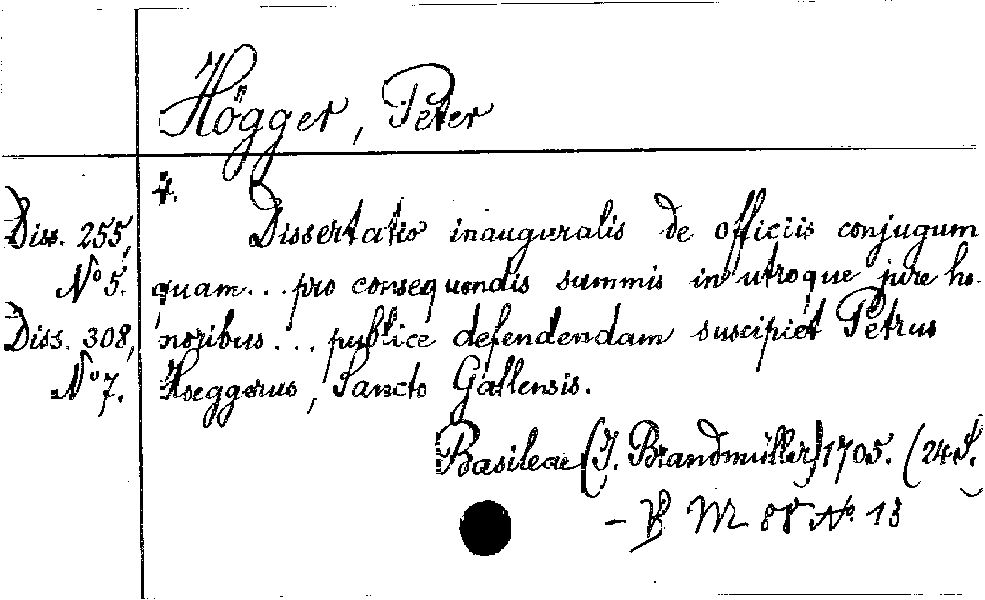 Högger, Peter
4.
Diss. 255,
No 5.
Diss. 308,
No 7.
Dissertatio inauguralis de officiis conjugum
quam... pro consequendis summis in utroque jure ho-
noribus... publice defendendam suscipiet Petrus
Hoeggerus, Sancto Gallensis.
Basileae (J. Brandmüller) 1705. (24 S.
- B M 88 No 13